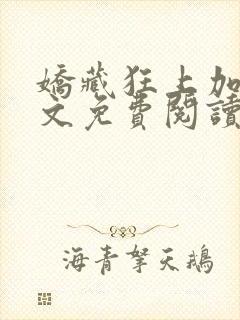 嬌藏狂上加
文免費閱讀
海青拏天鵝